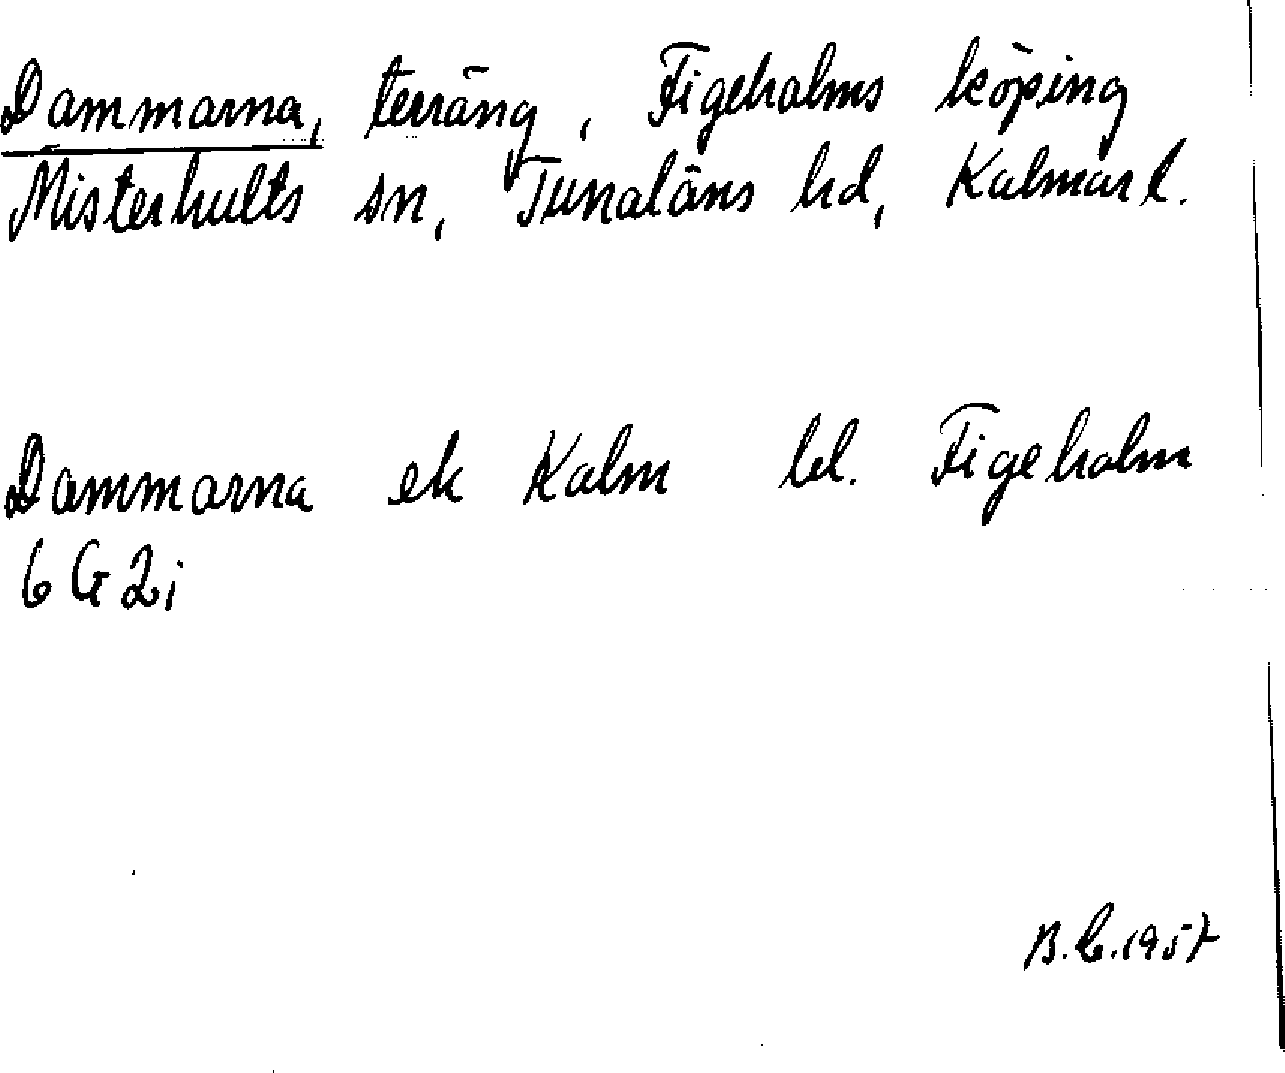 Dammarna, terräng, Figeholms köping
Misterhults sn, Tunaläns hd, Kalmar l.
Dammarna ek Kalm bl. Figeholm
6 G 2i
B.C. 1957